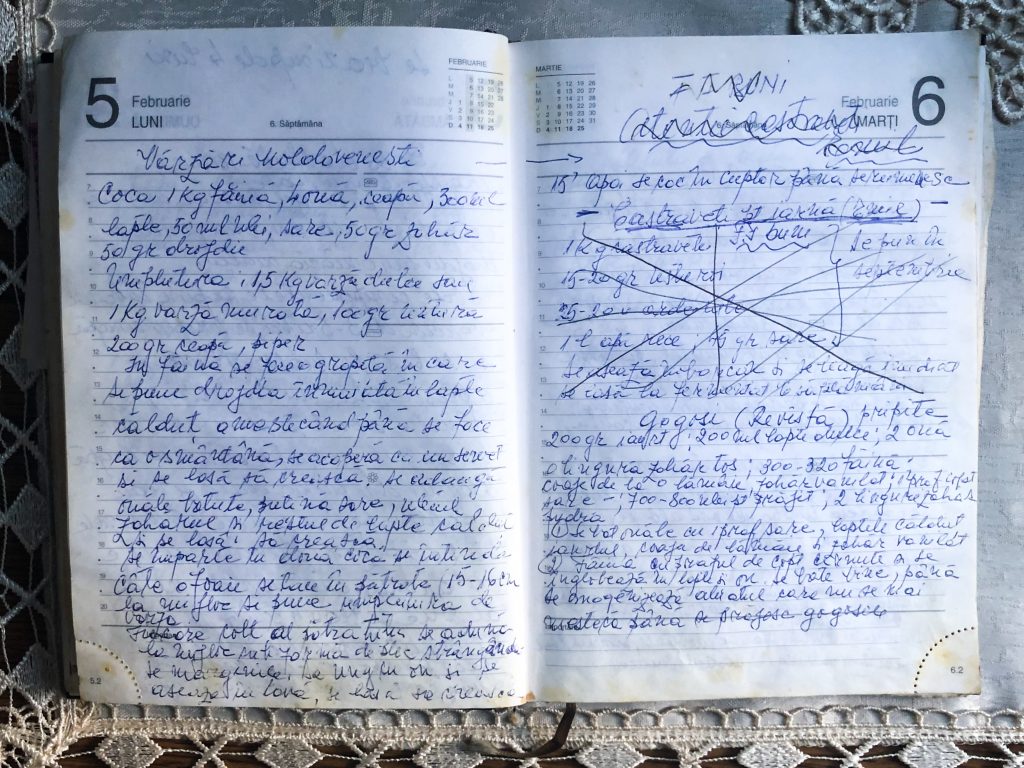 5
Februarie
LUNI
6. Săptămâna
FEBRUARIE
L 5 12 19 26
M 6 13 20 27
M 7 14 21 28
J 1 8 15 22
V 2 9 16 23
S 3 10 17 24
D 4 11 18 25
Vărzări Moldovenești
Coca 1 kg făină, 4 ouă, ceapă, 300 ml
lapte, 50 ml ulei, sare, 50 gr zahăr
50 gr drojdie
Umplutura: 1,5 Kg varză dulce sau
1 Kg varză murată, 100 gr untură
200 gr ceapă, piper
În făină se face o gropiță în care
se pune drojdia înmuiată în lapte
călduț amestecând până se face
ca o smântână, se acoperă cu un servet
și se lasă să crească se adaugă
ouăle bătute, puțină sare, uleiul
zaharul și restul de lapte călduț
și se lasă să crească
se împarte în două coca se întinde
câte o foaie se taie în pătrate (15-16 cm
la mijloc se pune umplutura de
varză
colț al pătratului se adună
la mijloc sub formă de plic strângând
se marginile. Se ung cu ou și se
așează în tavă, se lasă să crească
5.2
MARTIE
6
Februarie
MARȚI
15' apoi se coc în cuptor până se rumenesc
Castraveti pt iarnă (Emil)
F.F. buni
1 Kg castraveti
15-20 gr
se pun în
septembrie
1 l apă rece, gr sare
se așează în borcan și se leagă imediat
se lasă la fermentat
Gogosi (Revistă) pripite
200 gr iaurt; 200 ml lapte dulce; 2 ouă
o lingura zahăr tos; 300-320 făină;
coaja de la o lămâie, zahar vanilat; 1 praf copt
sare –; 700-800 ml pt prăjit; 2 linguri zahăr
pudră
1 se bat ouăle cu 1 praf sare, laptele călduț
iaurtul, coaja de lămâie și zahar vanilat
2 Făina cu praful de copt cernute și se
înglobează în lapte și ou se bate bine, până
se omogenizează aluatul care nu se mai
până se prăjesc gogosile
6.2